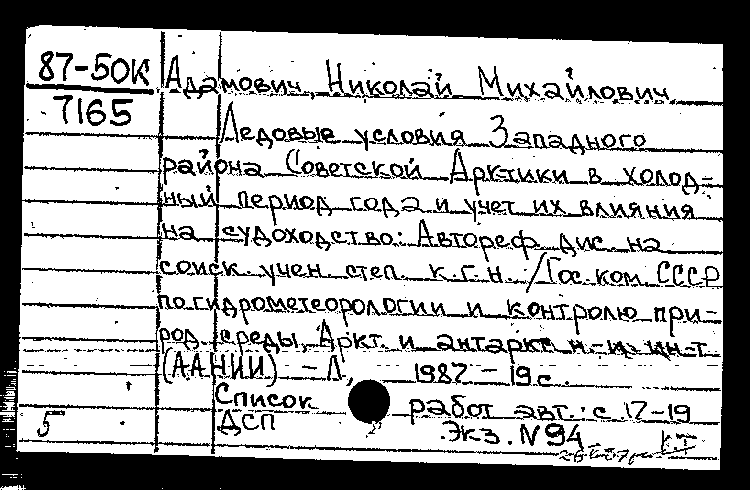 87-50К Адамович, Николай Михайлович
7165 Ледовые условия Западного
района Советской Арктики в холод-
ный период года и учет их влияния
на судоходство: Автореф. дис. на
соиск. учен. степ. к.г.н. /Гос. ком. СССР
по гидрометеорологии и контролю при-
род. среды, Аркт. и антаркт. н.-и. ин-т
(ААНИИ) - Л., 1987 - 19 с.
Список работ авт.: с 17-19
5 ДСП Экз. N 94
К.Т